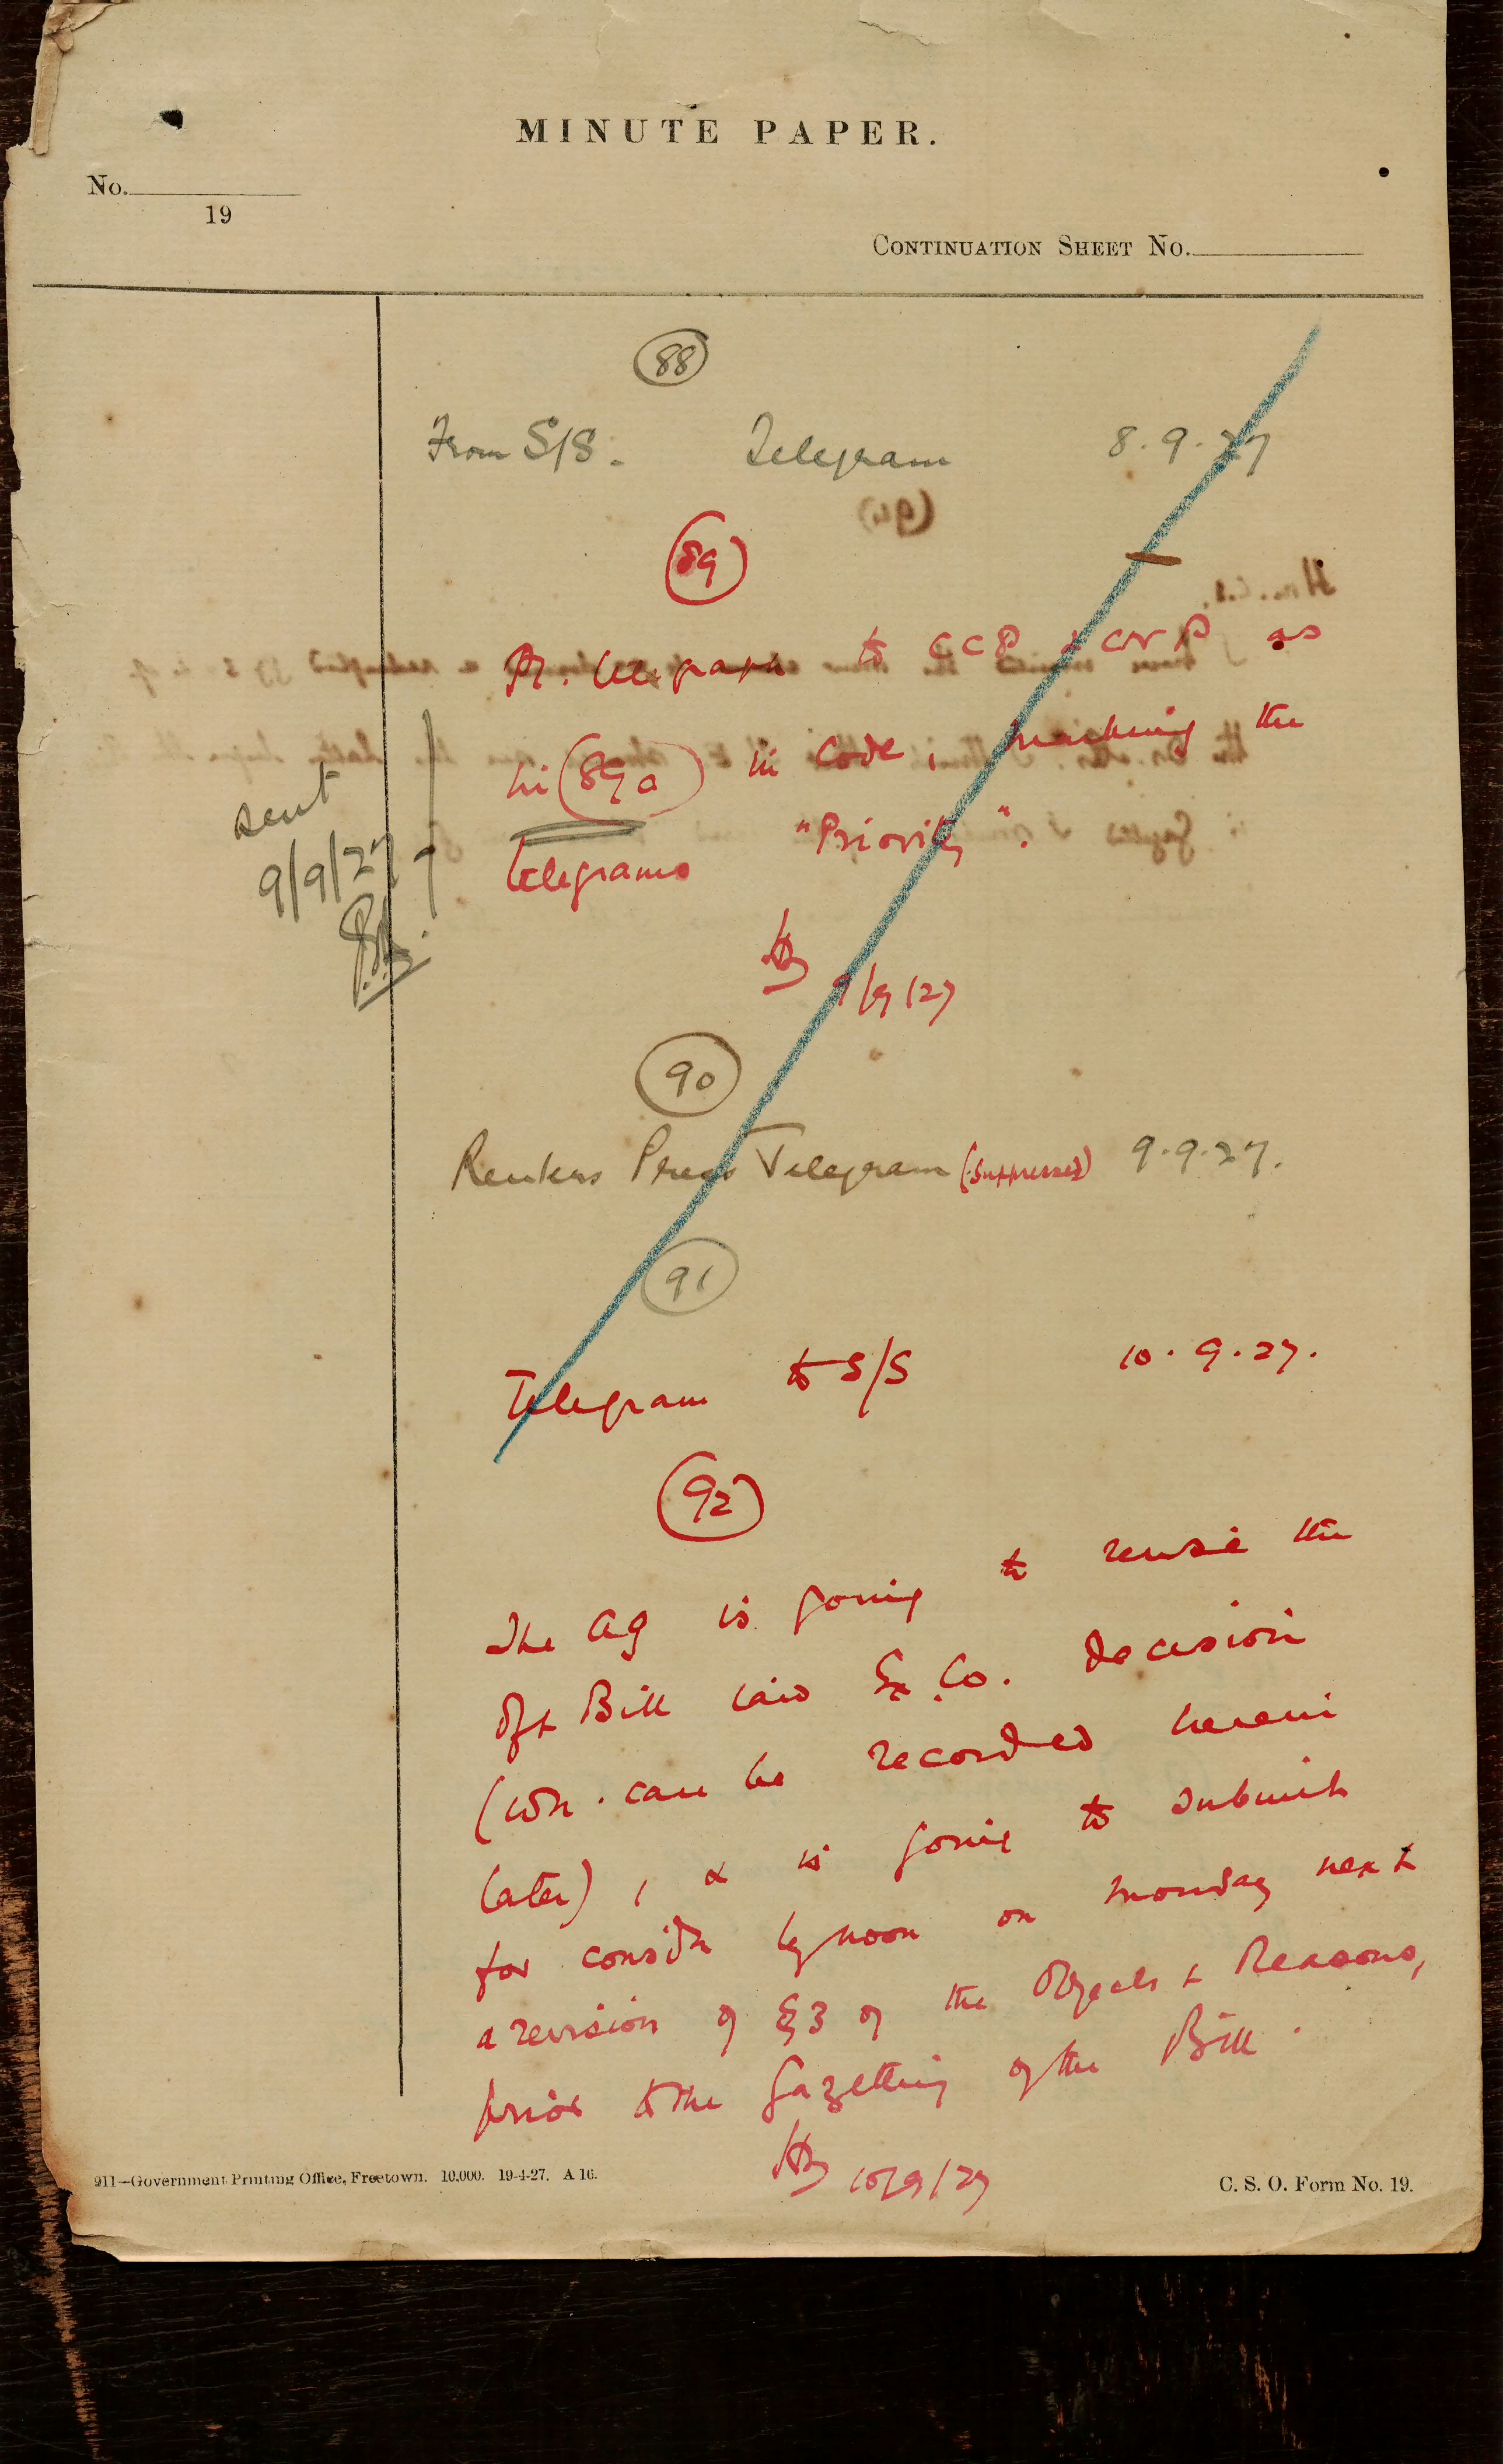 MINUTE PAPER.
No.
19
CONTINUATION SHEET No.
88
From S/S. Telegram 8.9.27
89
Pl. telegraph to CCP & CNP as
in 89a in code, marking the
telegrams "Priority".
HB 9/9/27
sent
9/9/27
90
Reuters Press Telegram (Suppressed) 9.9.27.
91
Telegram to S/S 10.9.27.
92
The AG is going to revise the
Dft Bill Ex. Co. decision
(wh. can be recorded herein
later), & is going to submit
for considn by noon on Monday next
a revision of § 3 of the Objects & Reasons,
prior to the gazetting of the Bill.
HB 10/9/27
911—Government Printing Office, Freetown. 10,000. 19-4-27. A 16.
C. S. O. Form No. 19.